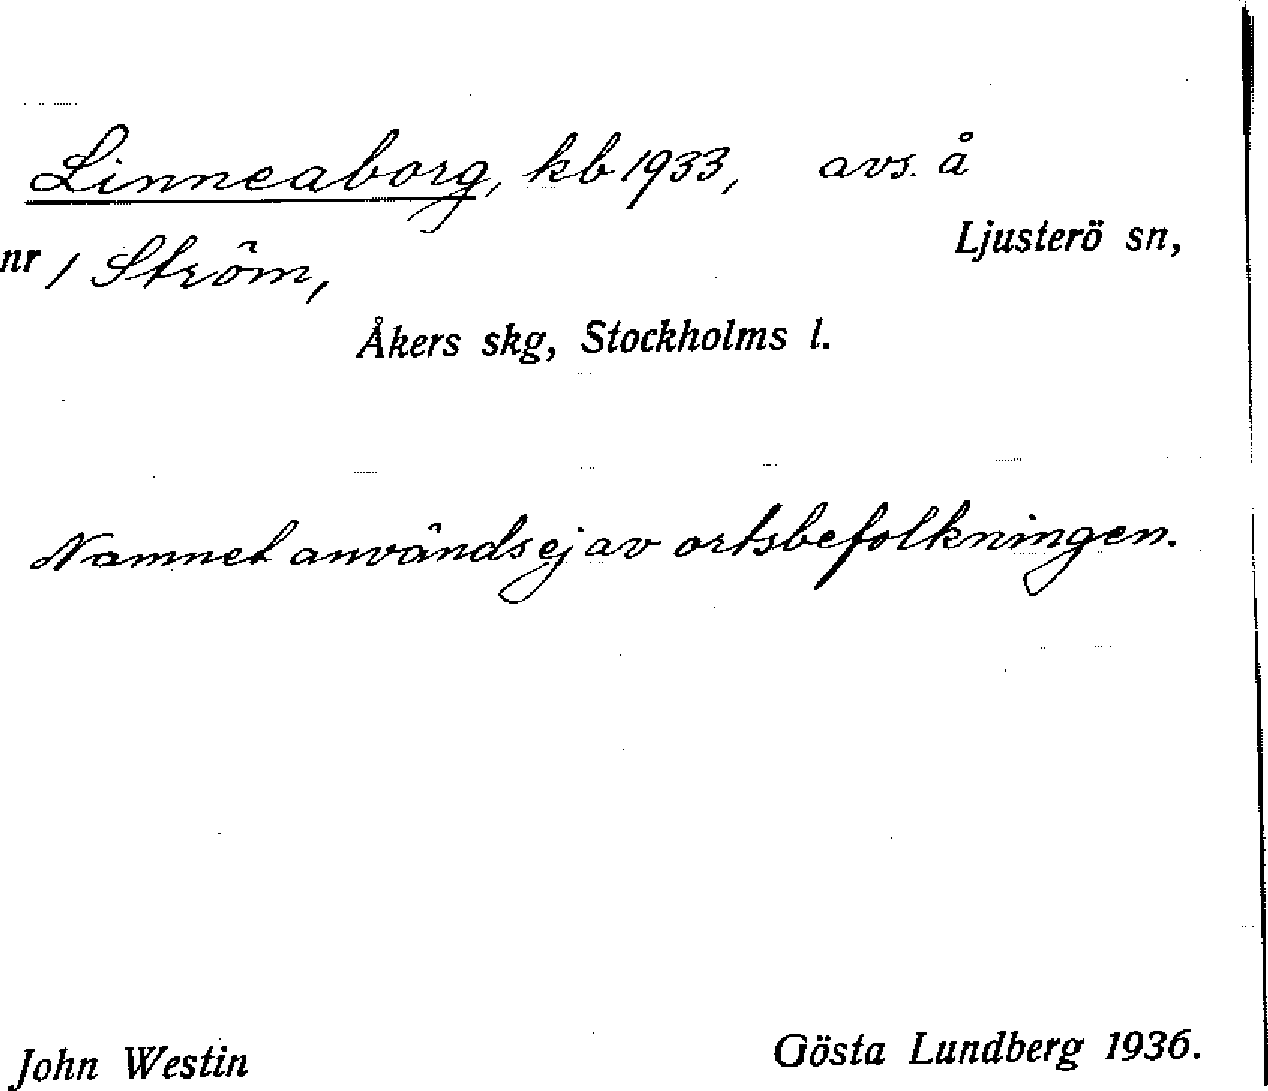 Linneaborg, kb 1933, avs. å
nr 1 Ström, Ljusterö sn,
Åkers skg, Stockholms l.
Namnet användsej av ortsbefolkningen.
John Westin Gösta Lundberg 1936.